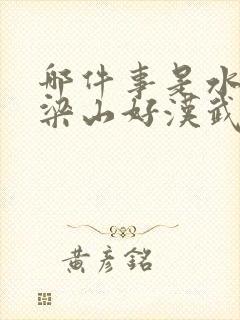 哪件事是水
梁山好漢武
黃彥銘